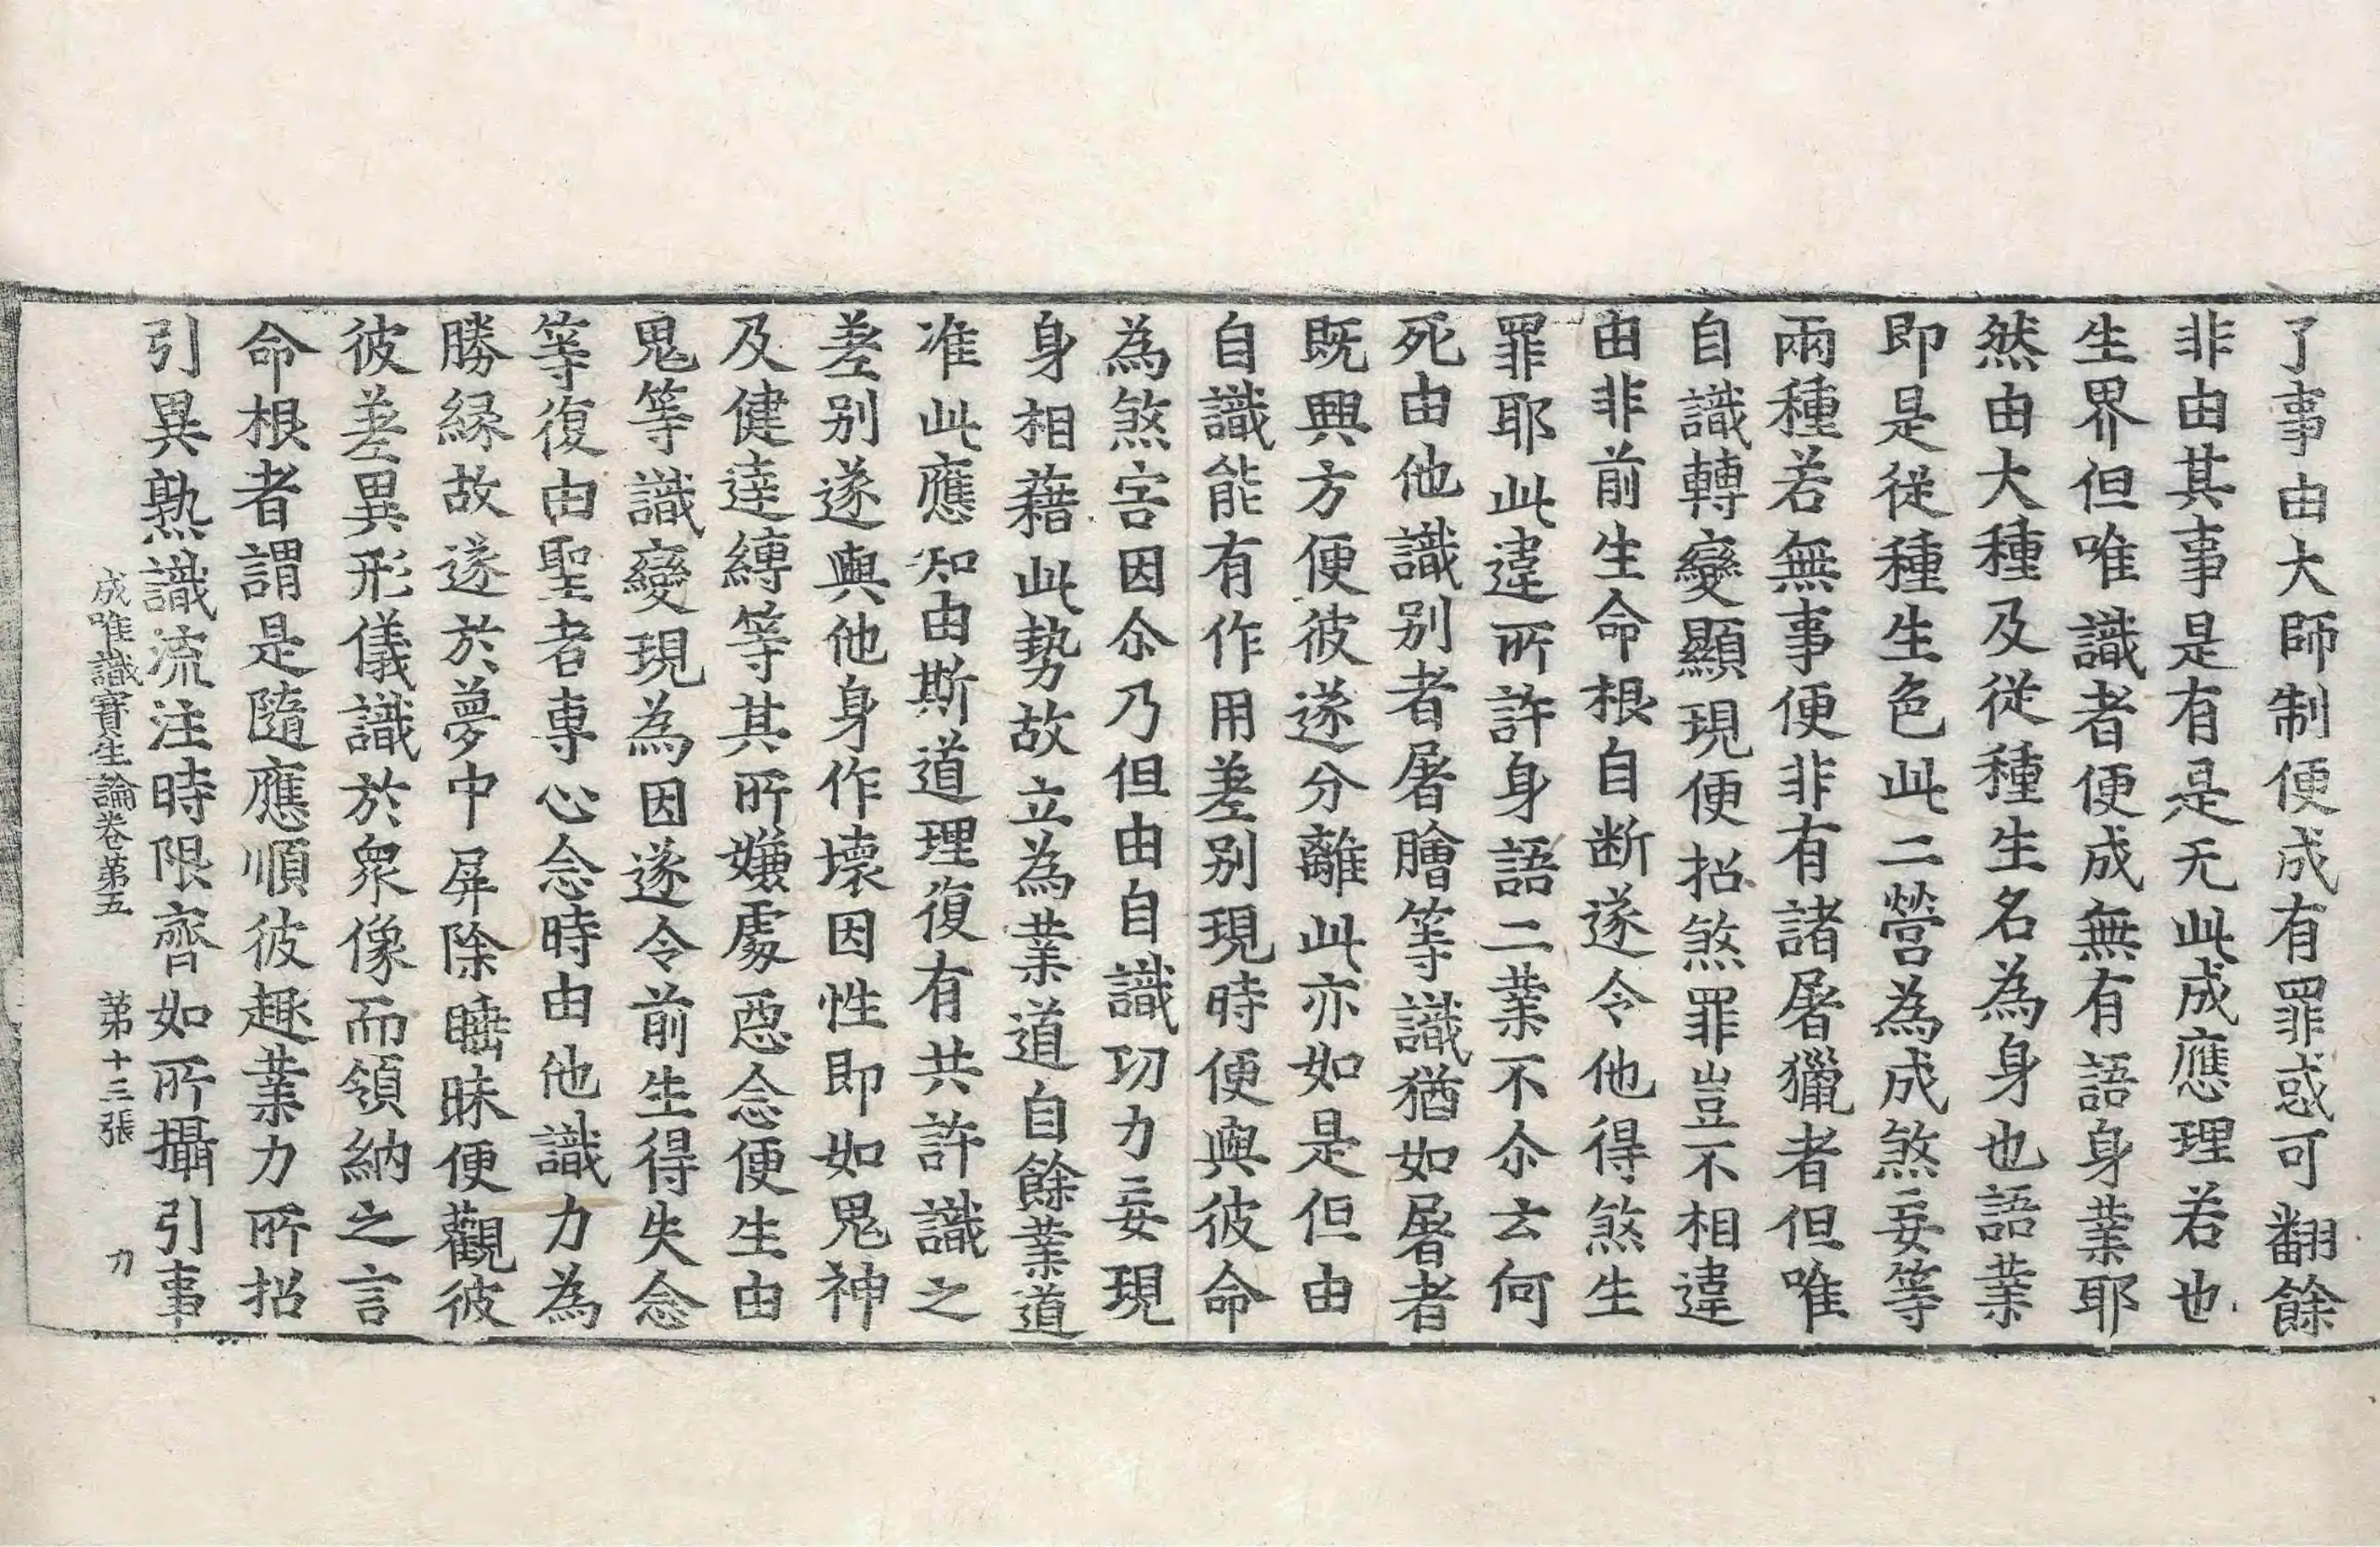 了事由大師制便成有罪或可翻餘
非由其事是有是无此成應理若也
生界但唯識者便成無有語身業耶
然由大種及從種生名為身也語業
即是從種生色此二營為成煞妄等
兩種若無事便非有諸屠獵者但唯
自識轉變顯現便招煞罪豈不相違
由非前生命根自断遂令他得煞生
罪耶此違所許身語二業不尒云何
死由他識别者屠膾等識猶如屠者
既興方便彼遂分離此亦如是但由
自識能有作用差别現時便與彼命
為煞害因尒乃但由自識功力妄現
身相藉此勢故立為業道自餘業道
准此應知由斯道理復有共許識之
差别遂與他身作壞因性即如鬼神
及健達縛等其所嫌處惡念便生由
鬼等識變現為因遂令前生得失念
等復由聖者專心念時由他識力為
勝縁故遂於夢中屏除睡昧便觀彼
彼差異形儀識於衆像而領納之言
命根者謂是隨應順彼趣業力所招
引異熟識流注時限齊如所攝引事
成唯識寶生論卷第五 第十三張 力